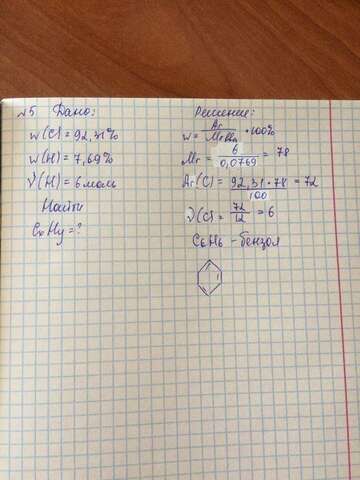 №5 Дано:
w(C) = 92,31%
w(H) = 7,69%
ν(H) = 6 моль
Найти
CxHy = ?
Решение:
w = Ar / Mr · 100%
Mr = 6 / 0,0769 = 78
Ar(C) = 92,31 · 78 / 100 = 72
ν(C) = 72 / 12 = 6
C6H6 – бензол